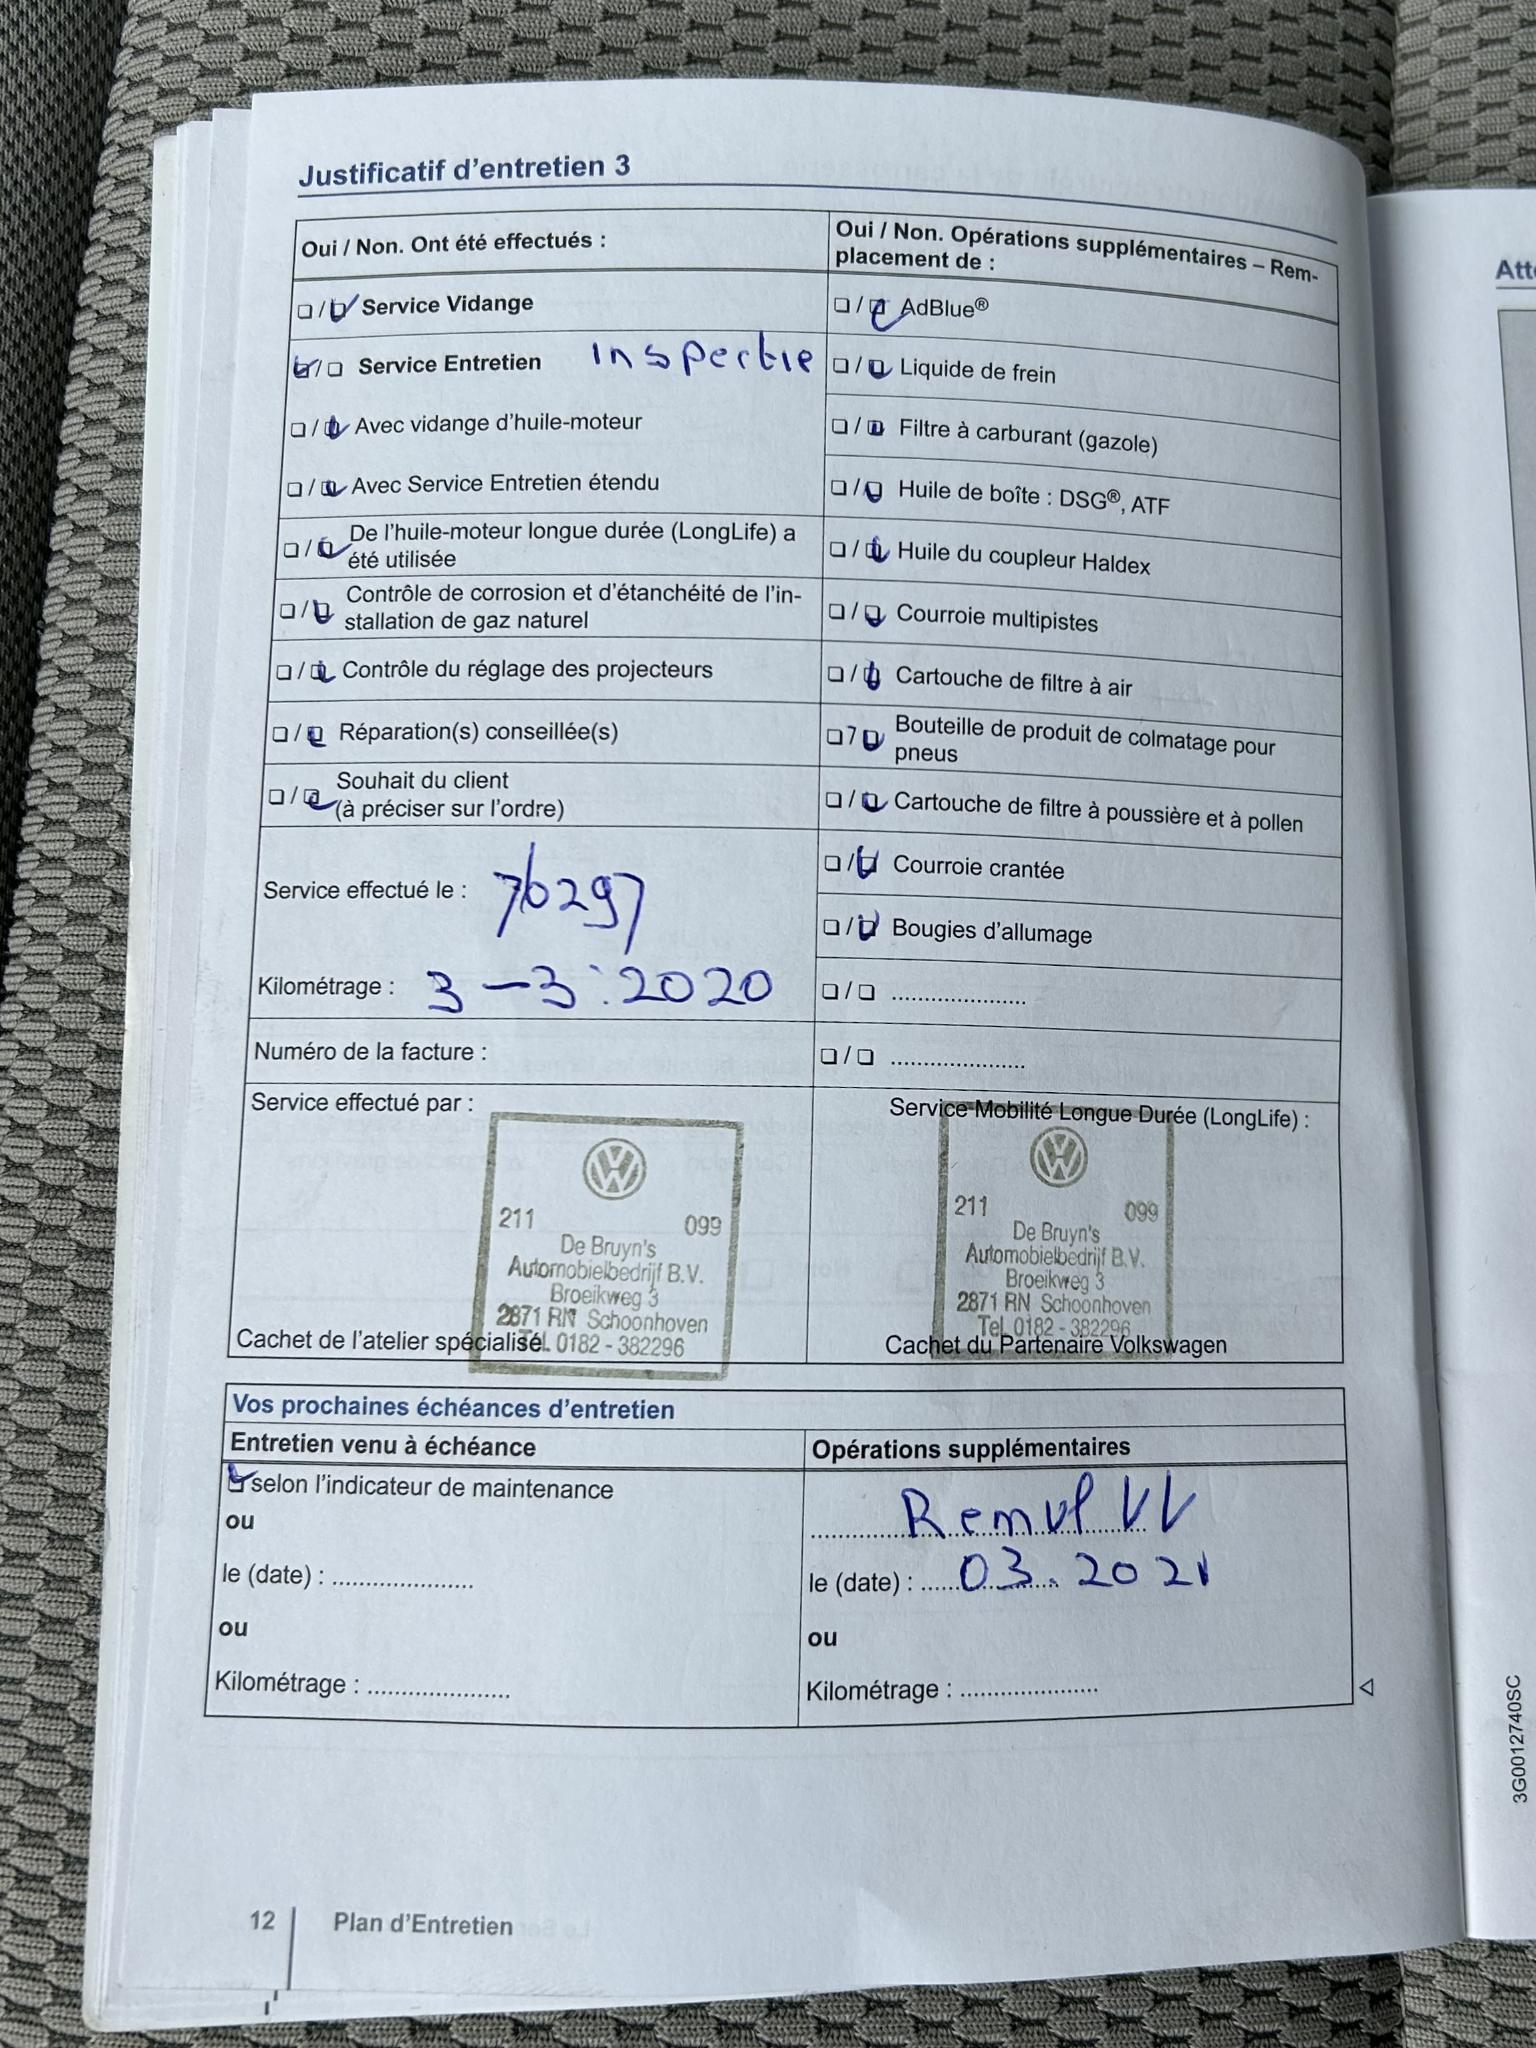 Justificatif d'entretien 3
Oui / Non. Ont été effectués :
❏ / ❏ Service Vidange
❏ / ❏ Service Entretien Inspectie
❏ / ❏ Avec vidange d'huile-moteur
❏ / ❏ Avec Service Entretien étendu
❏ / ❏ De l'huile-moteur longue durée (LongLife) a
été utilisée
❏ / ❏ Contrôle de corrosion et d'étanchéité de l'in-
stallation de gaz naturel
❏ / ❏ Contrôle du réglage des projecteurs
❏ / ❏ Réparation(s) conseillée(s)
❏ / ❏ Souhait du client
(à préciser sur l'ordre)
Service effectué le : 76297
Kilométrage : 3-3-2020
Numéro de la facture :
Service effectué par :
211 099
De Bruyn's
Automobielbedrijf B.V.
Broeikweg 3
2871 RN Schoonhoven
Tel. 0182 - 382296
Cachet de l'atelier spécialisé
Oui / Non. Opérations supplémentaires – Rem-
placement de :
❏ / ❏ AdBlue®
❏ / ❏ Liquide de frein
❏ / ❏ Filtre à carburant (gazole)
❏ / ❏ Huile de boîte : DSG®, ATF
❏ / ❏ Huile du coupleur Haldex
❏ / ❏ Courroie multipistes
❏ / ❏ Cartouche de filtre à air
❏ / ❏ Bouteille de produit de colmatage pour
pneus
❏ / ❏ Cartouche de filtre à poussière et à pollen
❏ / ❏ Courroie crantée
❏ / ❏ Bougies d'allumage
❏ / ❏ .....................
❏ / ❏ .....................
Service Mobilité Longue Durée (LongLife) :
211 099
De Bruyn's
Automobielbedrijf B.V.
Broeikweg 3
2871 RN Schoonhoven
Tel. 0182 - 382296
Cachet du Partenaire Volkswagen
Vos prochaines échéances d'entretien
Entretien venu à échéance
❏ selon l'indicateur de maintenance
ou
le (date) : .....................
ou
Kilométrage : .....................
Opérations supplémentaires
Remvl VV
le (date) : 03.2021
ou
Kilométrage : .....................
12 Plan d'Entretien
3G0012740SC